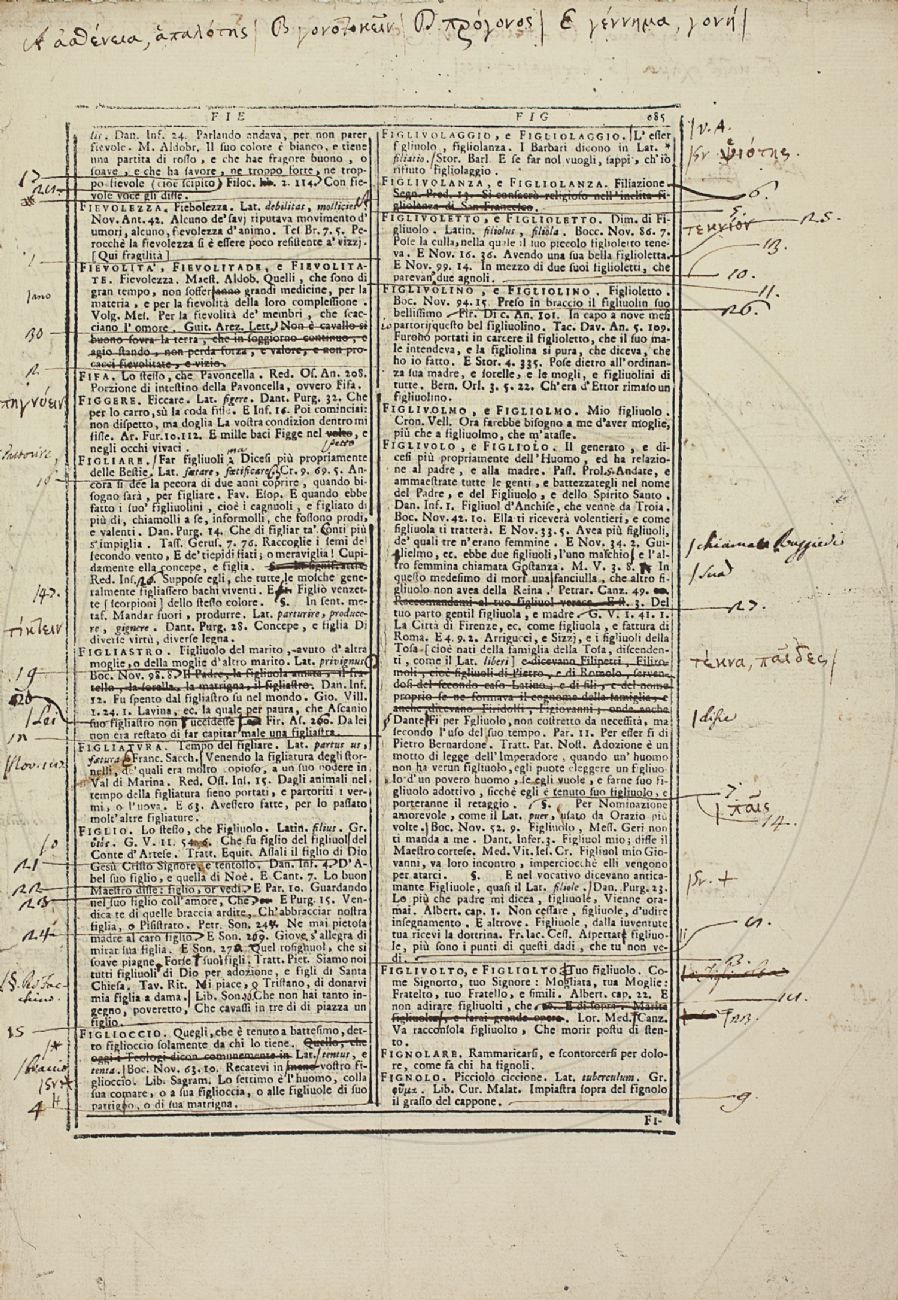 A ἀσθένεια, ἁπαλότης/ B γονοτοκεῖν/ D πρόγονος/ E γέννημα, γονή/
FIE
FIG
685
lis. Dan. Inf. 24. Parlando andava, per non parer
fievole. M. Aldobr. Il suo colore è bianco, e tiene
una partita di rosso, e che hae fragore buono, o
soave, e che ha savore, ne troppo forte, ne trop-
po fievole (cioè scipito) Filoc. lib. 2. 114. Con fie-
vole voce gli disse.
FIEVOLEZZA. Fiebolezza. Lat. debilitas, mollicies
Nov. Ant. 42. Alcuno de' savj riputava movimento d'
umori, alcuno, fievolezza d'animo. Tes Br. 7. 5. Pe-
rocchè la fievolezza si è essere poco resistente a' vizzj.
[Qui fragilità]
FIEVOLITA', FIEVOLITADE, e FIEVOLITA-
TE. Fievolezza. Maest. Aldob. Quelli, che sono di
gran tempo, non soffer anno grandi medicine, per la
materia, e per la fievolità della loro complessione.
Volg. Mes. Per la fievolità de' membri, che scac-
ciano l'omore. Guit. Arez. Lett. Non è cavallo sì
buono sovra la terra, che in soggiorno continuo, e
agio stando, non perda forza, e valore, e non pro-
cacci fievolitate, e vizio.
FIFA. Lo stesso, che Pavoncella. Red. Os. An. 208.
Porzione di intestino della Pavoncella, ovvero Fifa.
FIGGERE. Ficcare. Lat. figere. Dant. Purg. 32. Che
per lo carro, sù la coda fisse. E Inf. 16. Poi cominciai:
non dispetto, ma doglia La vostra condizion dentro mi
fisse. Ar. Fur. 10. 112. E mille baci Figge nel volto, e
negli occhi vivaci.
petto
FIGLIARE. Far figliuoli ma Dicesi più propriamente
delle Bestie. Lat. fœtare, fœtificare Cr. 9. 69. 5. An-
cora si dee la pecora di due anni coprire, quando bi-
sogno sarà, per figliare. Fav. Esop. E quando ebbe
fatto i suo' figliuolini, cioè i cagnuoli, e figliato di
più dì, chiamolli a se, informolli, che fossono prodi,
e valenti. Dan. Purg. 14. Che di figliar ta' Conti più
s'impiglia. Tass. Gerus. 7. 76. Raccoglie i semi del
fecondo vento, E de' tiepidi fiati; o meraviglia! Cupi-
damente ella concepe, e figlia.
Red. Ins. Suppose egli, che tutte le mosche gene-
ralmente figliassero bachi viventi. E Figliò venzet-
te [scorpioni] dello stesso colore. §. In sent. me-
taf. Mandar fuori, produrre. Lat. parturire, produce-
re, gignere. Dant. Purg. 28. Concepe, e figlia Di
diverse virtù, diverse legna.
FIGLIASTRO. Figliuolo del marito, avuto d'altra
moglie, o della moglie d'altro marito. Lat. privignus
Boc. Nov. 98. 8 Il Padre, la figliuola amata, il fra-
tello, la sorella, la matrigna, il figliastro. Dan. Inf.
12. Fu spento dal figliastro sù nel mondo. Gio. Vill.
1. 24. 1. Lavina, ec. la quale per paura, che Ascanio
suo figliastro non l'uccidesse Fir. As. 260. Da lei
non era restato di far capitar male una figliastra.
FIGLIATURA. Tempo del figliare. Lat. partus us,
fœtura Franc. Sacch. Venendo la figliatura degli stor-
nelli, de' quali era molto copioso, a un suo podere in
Val di Marina. Red. Oss. Ins. 15. Dagli animali nel
tempo della figliatura sieno portati, e partoriti i ver-
mi, o l'uova. E 63. Avessero fatte, per lo passato
molt'altre figliature.
FIGLIO. Lo stesso, che Figliuolo. Latin. filius. Gr.
υἱός. G. V. 11. 54. 6. Che fu figlio del figliuol del
Conte d'Artese. Tratt. Equit. Assali il figlio di Dio
Gesù Cristo Signore, e tentollo. Dan. Inf. 4. D'A-
bel suo figlio, e quella di Noè. E Cant. 7. Lo buon
Maestro disse: figlio, or vedi. E Par. 10. Guardando
nel suo figlio coll'amore, Che E Purg. 15. Ven-
dica te di quelle braccia ardite, Ch'abbracciar nostra
figlia, o Pisistrato. Petr. Son. 244. Ne mai pietosa
madre al caro figlio. E Son. 269. Giove s'allegra di
mirar sua figlia. E Son. 270. Quel rosignuol, che sì
soave piagne, Forse suoi figli. Tratt. Piet. Siamo noi
tutti figliuoli di Dio per adozione, e figli di Santa
Chiesa. Tav. Rit. Mi piace, o Tristano, di donarvi
mia figlia a dama. Lib. Son. 20. Che non hai tanto in-
gegno, poveretto, Che cavassi in tre dì di piazza un
figlio.
FIGLIOCCIO. Quegli, che è tenuto a battesimo, det-
to figlioccio solamente da chi lo tiene. Quello, che
oggi i Teologi dicon comunemente in Lat. tentus, e
tenta. Boc. Nov. 63. 10. Recatevi in vostro fi-
glioccio. Lib. Sagram. Lo settimo è l'huomo, colla
sua comare, o a sua figlioccia, o alle figliuole di suo
patrigno, o di sua matrigna.
FIGLIVOLAGGIO, e FIGLIOLAGGIO. L'esser
figliuolo, figliolanza. I Barbari dicono in Lat.
filiatio. Stor. Barl. E se far nol vuogli, sappi, ch'io
rifiuto figliolaggio.
FIGLIVOLANZA, e FIGLIOLANZA. Filiazione
Segn. Pred. 13. Si consacrò religioso nell'inclita fi-
gliolanza di San Francesco.
FIGLIVOLETTO, e FIGLIOLETTO. Dim. di Fi-
gliuolo. Latin. filiolus, filiola. Bocc. Nov. 86. 7.
Pose la culla, nella quale il suo piccolo figlioletto tene-
va. E Nov. 16. 36. Avendo una sua bella figlioletta
E Nov. 99. 14. In mezzo di due suoi figlioletti, che
parevan due agnoli.
FIGLIVOLINO, e FIGLIOLINO. Figlioletto.
Boc. Nov. 94. 15. Preso in braccio il figliuolin suo
bellissimo Fir. Di c. An. 101. In capo a nove mesi
partorì questo bel figliuolino. Tac. Dav. An. 5. 109.
Furono portati in carcere il figlioletto, che il suo ma-
le intendeva, e la figliolina sì pura, che diceva, che
ho io fatto. E Stor. 4. 335. Pose dietro all'ordinan-
za sua madre, e sorelle, e le mogli, e figliuolini di
tutte. Bern. Orl. 3. 5. 22. Ch'era d'Ettor rimaso un
figliuolino.
FIGLIVOLMO, e FIGLIOLMO. Mio figliuolo.
Cron. Vell. Ora farebbe bisogno a me d'aver moglie,
più che a figliuolmo, che m'atasse.
FIGLIVOLO, e FIGLIOLO. Il generato, e di-
cesi più propriamente dell'Huomo, ed ha relazio-
ne al padre, e alla madre. Pass. Prol. 5. Andate, e
ammaestrate tutte le genti, e battezzategli nel nome
del Padre, e del Figliuolo, e dello Spirito Santo.
Dan. Inf. 1. Figliuol d'Anchise, che venne da Troia.
Boc. Nov. 42. 10. Ella ti riceverà volentieri, e come
figliuola ti tratterà. E Nov. 33. 5. Avea più figliuoli,
de' quali tre n'erano femmine. E Nov. 34. 2. Gui-
glielmo, ec. ebbe due figliuoli, l'uno maschio e l'al-
tro femmina chiamata Gostanza. M. V. 3. 8. In
questo medesimo di morì una fanciulla, che altro fi-
gliuolo non avea della Reina. Petrar. Canz. 49.
Raccomandami al tuo figliuol verace. E st. 3. Del
tuo parto gentil figliuola, e madre. G. V. 1. 41. 1.
La Città di Firenze, ec. come figliuola, e fattura di
Roma. E 4. 9. 2. Arrigucci, e Sizzj, e i figliuoli della
Tosa [cioè nati della famiglia della Tosa, discenden-
ti, come il Lat. liberi] e dicevano Filipetri, Filiro-
moli, cioè figliuoli di Pietro, e di Romolo, serven-
dosi del secondo caso Latino; e di fili, e del nome
proprio se ne formava il cognome della famiglia, e
anche dicevano Firidolfi, Figiovanni; onde anche
Dante Fi per Figliuolo, non costretto da necessità, ma
secondo l'uso del suo tempo. Par. 11. Per esser fi di
Pietro Bernardone. Tratt. Pat. Nost. Adozione è un
motto di legge dell'Imperadore, quando un'huomo
non ha verun figliuolo, egli puote eleggere un figliuo-
lo d'un povero huomo, se egli vuole, e farne suo fi-
gliuolo adottivo, sicchè egli è tenuto suo figliuolo, e
porteranne il retaggio. §. Per Nominazione
amorevole, come il Lat. puer, usato da Orazio più
volte. Boc. Nov. 52. 9. Figliuolo, Mess. Geri non
ti manda a me. Dant. Infer. 3. Figliuol mio, disse il
Maestro cortese. Med. Vit. Ies. Cr. Figliuol mio Gio-
vanni, va loro incontro, imperciocchè elli vengono
per atarci. §. E nel vocativo dicevano antica-
mante Figliuole, quasi il Lat. filiole. Dan. Purg. 23.
Lo più che padre mi dicea, figliuole, Vienne ora-
mai. Albert. cap. 1. Non cessare, figliuole, d'udire
insegnamento. E altrove. Figliuole, dalla iuventute
tua ricevi la dottrina. Fr. Iac. Cess. Aspettare figliuo-
le, più sono i punti di questi dadi, che tu non ve-
di.
FIGLIVOLTO, e FIGLIOLTO. Tuo figliuolo. Co-
me Signorto, tuo Signore: Mogliata, tua Moglie:
Fratelto, tuo Fratello, e simili. Albert. cap. 22. E
non adirare figliuolti, che, ec. E di sopra: Marita
figliuolta, e farai grande opera. Lor. Med. Canz.
Va racconsola figliuolto, Che morir postu di sten-
to.
FIGNOLARE. Rammaricarsi, e scontorcersi per dolo-
re, come fa chi ha fignoli.
FIGNOLO. Picciolo ciccione. Lat. tuberculum. Gr.
φῦμα. Lib. Cur. Malat. Impiastra sopra del fignolo
il grasso del cappone.
FI-
17
1
30
2
πηγνύειν
τίκτειν
19
20
Lei
10
21
22
23
24
15
4
υἱότης.
6.
5.
τεκνίον
25.
13.
10.
11.
26.
sua
27.
τέκνα, παῖδες/
disse
7.
παῖς
14.
9.